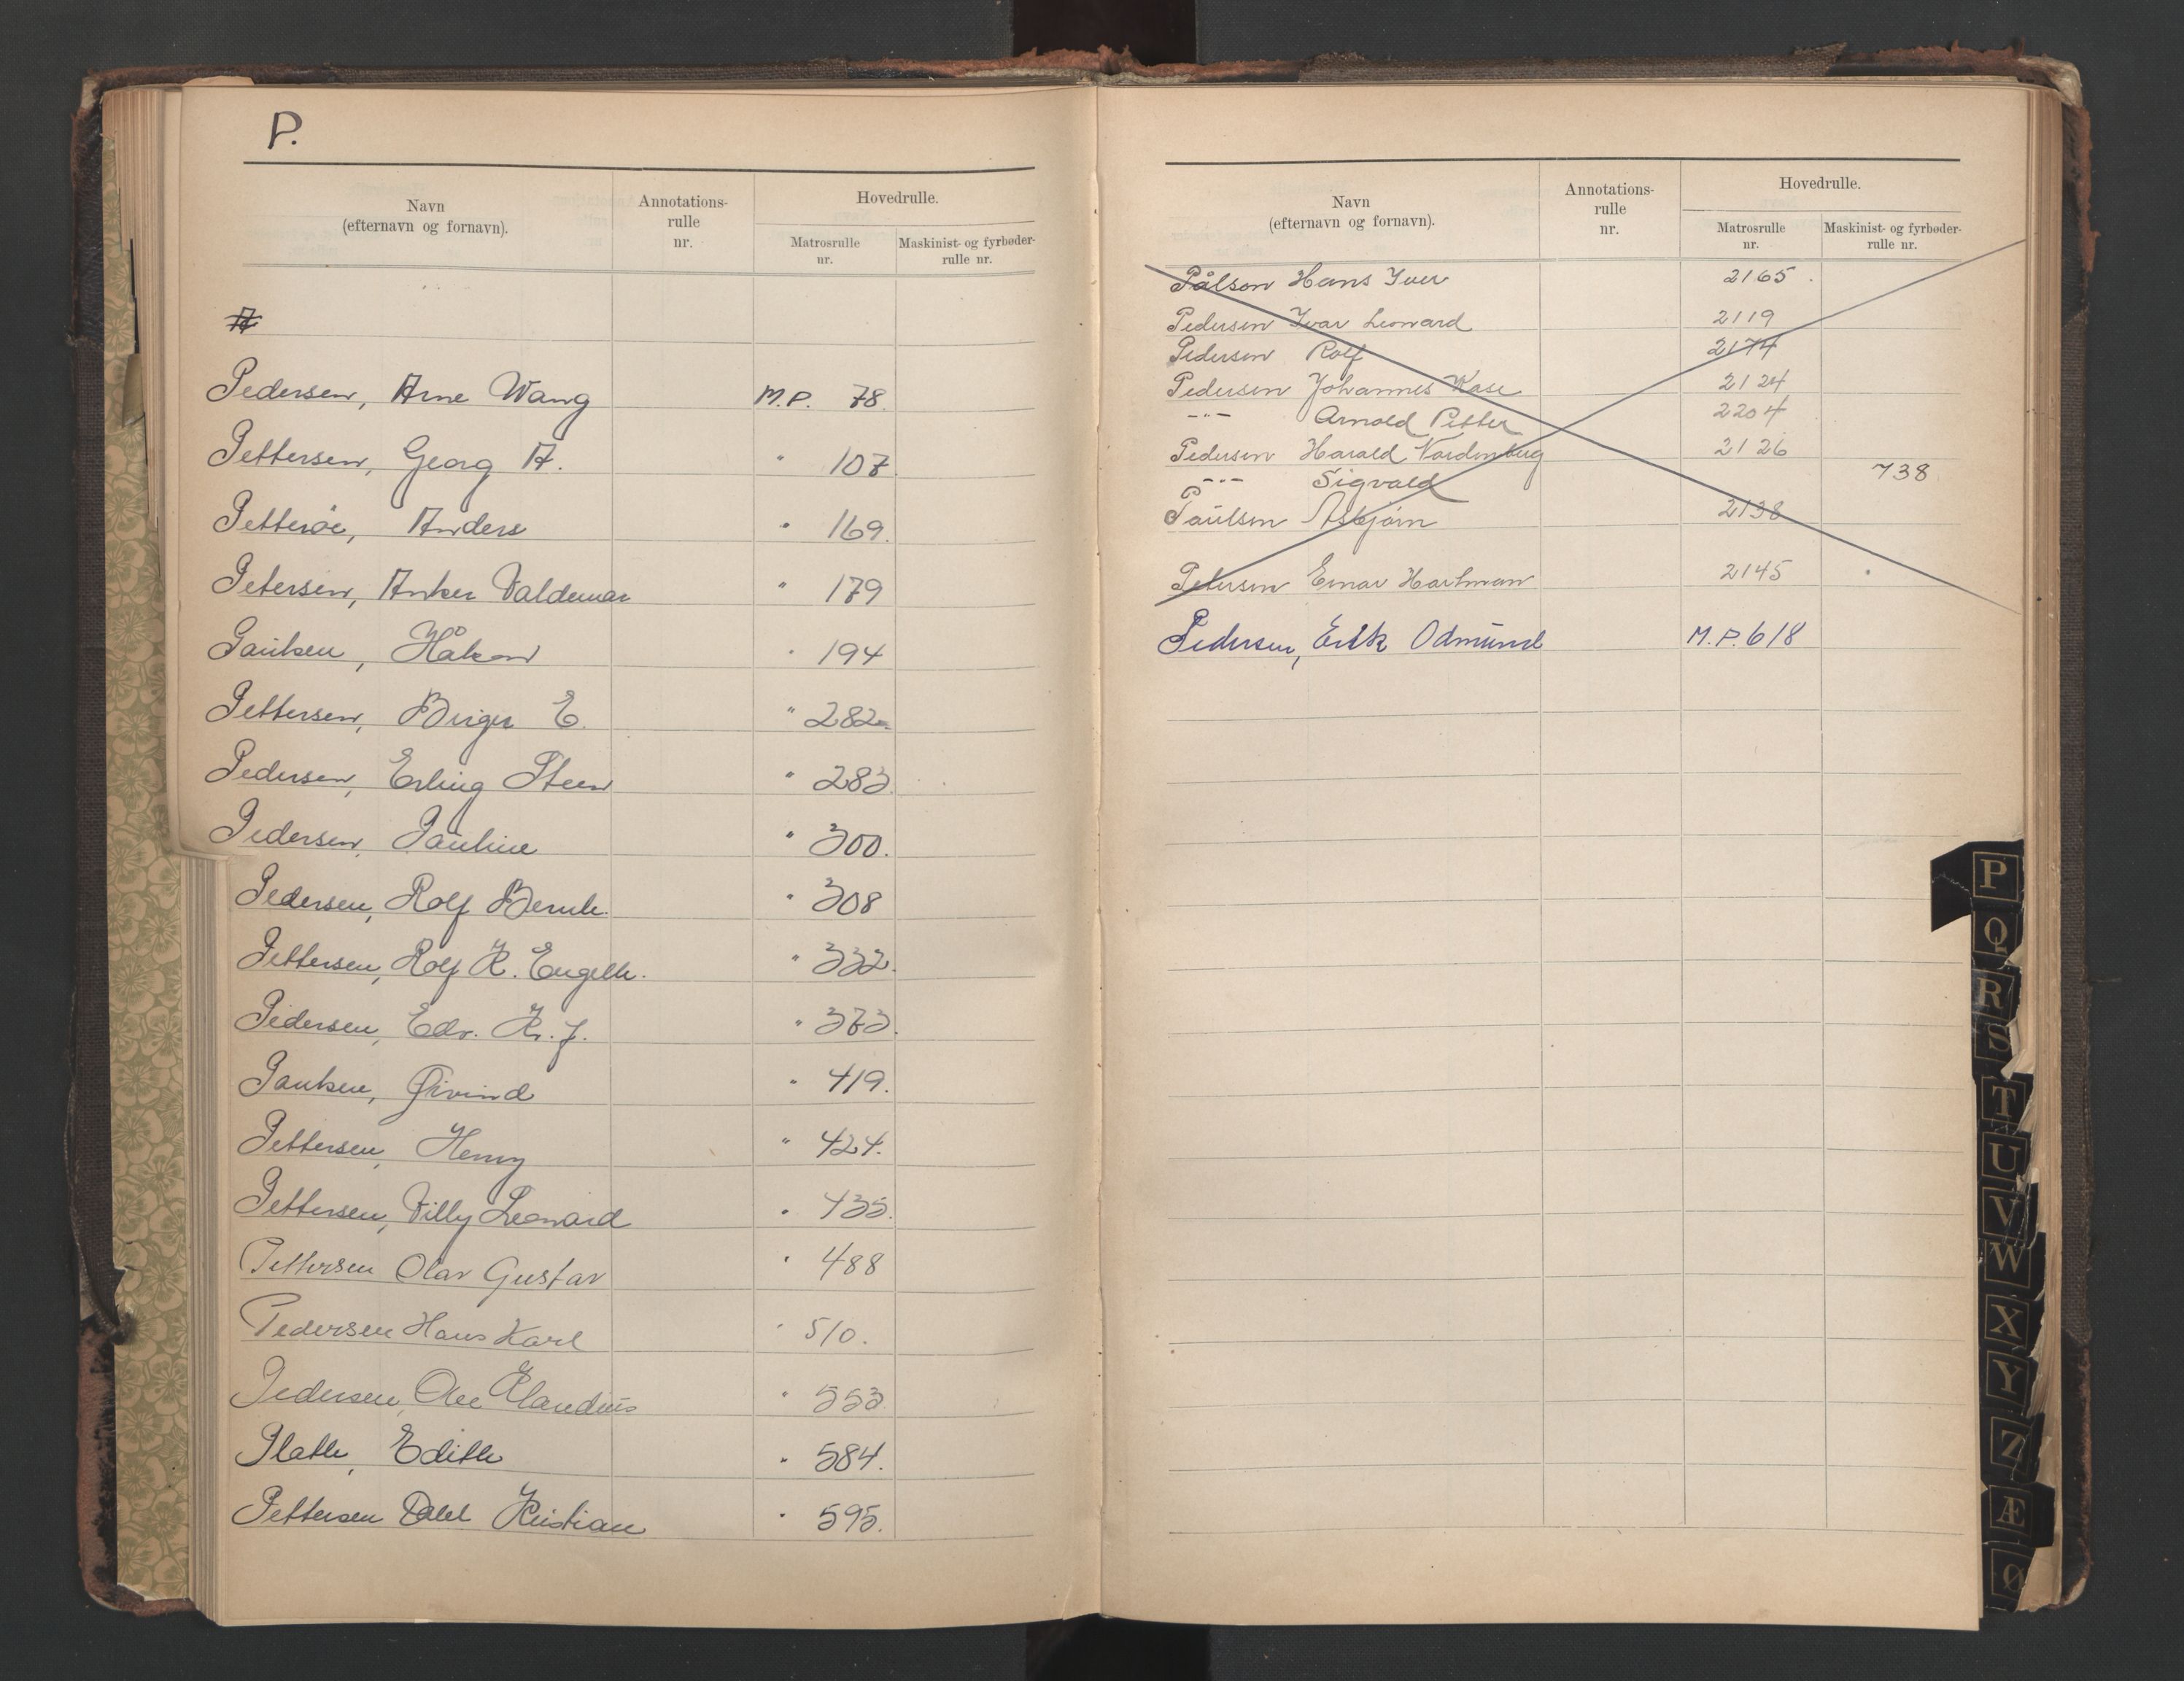 P.
Navn
(efternavn og fornavn).
Annotations-
rulle
nr.
Hovedrulle.
Matrosrulle
nr.
Maskinist- og fyrbøder-
rulle nr.
A
Pedersen, Arne Wang M.P. 78.
Pettersen, Georg A. " 107.
Petterøe, Anders " 169.
Petersen, Anker Valdemar " 179
Paulsen, Håkon " 194
Pettersen, Birger E. " 282
Pedersen, Erling Steen " 283.
Pedersen, Pauline " 300.
Pedersen, Rolf Bernh. " 308
Pettersen, Rolf K. Engelh. " 332.
Pedersen, Edv. Kr. J. " 373.
Paulsen, Øivind " 419.
Pettersen, Henry " 424.
Pettersen, Villy Leonard " 435.
Pettersen Olav Gustav " 488
Pedersen Hans Karl " 510.
Pedersen, Ole Klaudius " 553
Plath, Edith " 584.
Pettersen Odd Kristian " 595.
Navn
(efternavn og fornavn).
Annotations-
rulle
nr.
Hovedrulle.
Matrosrulle
nr.
Maskinist- og fyrbøder-
rulle nr.
Pålson Hans Iver 2165
Pedersen Ivar Leonard 2119
Pedersen Rolf 2174
Pedersen Johannes Kase 2124
-"- Arnold Petter 2204
Pedersen Harald Nordenberg 2126
-"- Sigvald 738
Paulsen Asbjørn 2138
Petersen Einar Hartman 2145
Pedersen, Erik Odmund M.P. 618
P
Q
R
S
T
U
V
W
X
Y
Z
Æ
Ø